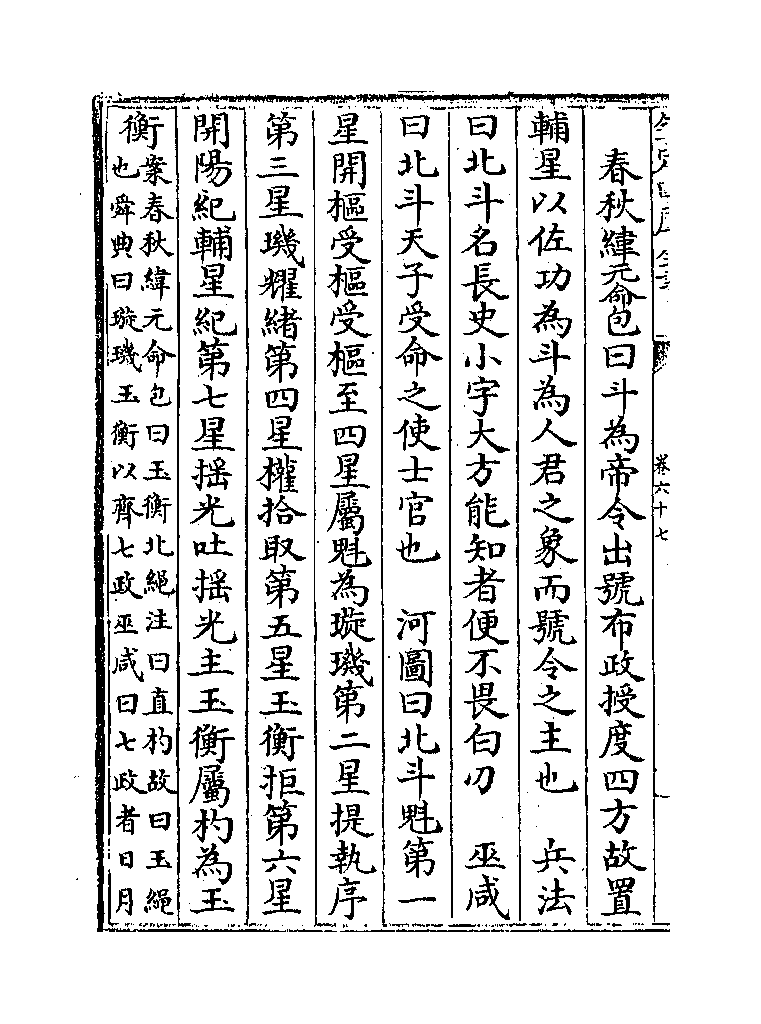 卷六十七
春秋緯元命包曰斗為帝令出號布政授度四方故置
輔星以佐功為斗為人君之象而號令之主也　兵法
曰北斗名長史小字大方能知者便不畏白刃　巫咸
曰北斗天子受命之使士官也　河圖曰北斗魁第一
星開樞受樞受樞至四星屬魁為璇璣第二星提執序
第三星璣耀緒第四星權拾取第五星玉衡拒第六星
開陽紀輔星紀第七星揺光吐揺光主玉衡屬杓為玉
衡案春秋緯元命包曰玉衡北繩注曰直杓故曰玉繩
也舜典曰璇璣玉衡以齊七政巫咸曰七政者日月